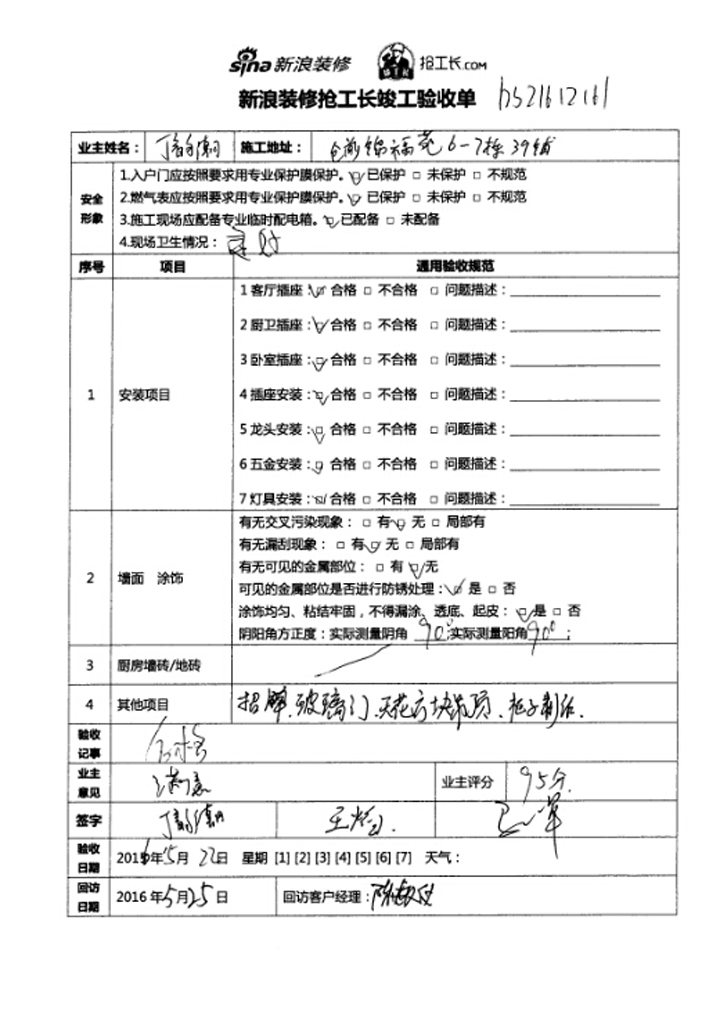 sina新浪装修 抢工长.COM
新浪装修抢工长竣工验收单
业主姓名： 施工地址： 6-7栋39铺
安全形象
1.入户门应按照要求用专业保护膜保护。□已保护 □ 未保护 □ 不规范
2.燃气表应按照要求用专业保护膜保护。□已保护 □ 未保护 □ 不规范
3.施工现场应配备专业临时配电箱。□已配备 □ 未配备
4.现场卫生情况：
序号 项目 通用验收规范
1 安装项目
1 客厅插座：□ 合格 □ 不合格 □ 问题描述：
2 厨卫插座：□ 合格 □ 不合格 □ 问题描述：
3 卧室插座：□ 合格 □ 不合格 □ 问题描述：
4 插座安装：□ 合格 □ 不合格 □ 问题描述：
5 龙头安装：□ 合格 □ 不合格 □ 问题描述：
6 五金安装：□ 合格 □ 不合格 □ 问题描述：
7 灯具安装：□ 合格 □ 不合格 □ 问题描述：
2 墙面 涂饰
有无交叉污染现象： □ 有 □ 无 □ 局部有
有无漏刮现象： □ 有 □ 无 □ 局部有
有无可见的金属部位： □ 有 □ 无
可见的金属部位是否进行防锈处理：□ 是 □ 否
涂饰均匀、粘结牢固，不得漏涂、透底、起皮：□ 是 □ 否
阴阳角方正度：实际测量阴角 90°;实际测量阳角 90°;
3 厨房墙砖/地砖
4 其他项目 招牌、玻璃门、天花方块吊顶、柜子制作.
验收记事 合格
业主意见 满意 业主评分 95分.
签字
验收日期 2016年5月22日 星期 [1] [2] [3] [4] [5] [6] [7] 天气：
回访日期 2016年5月25日 回访客户经理：